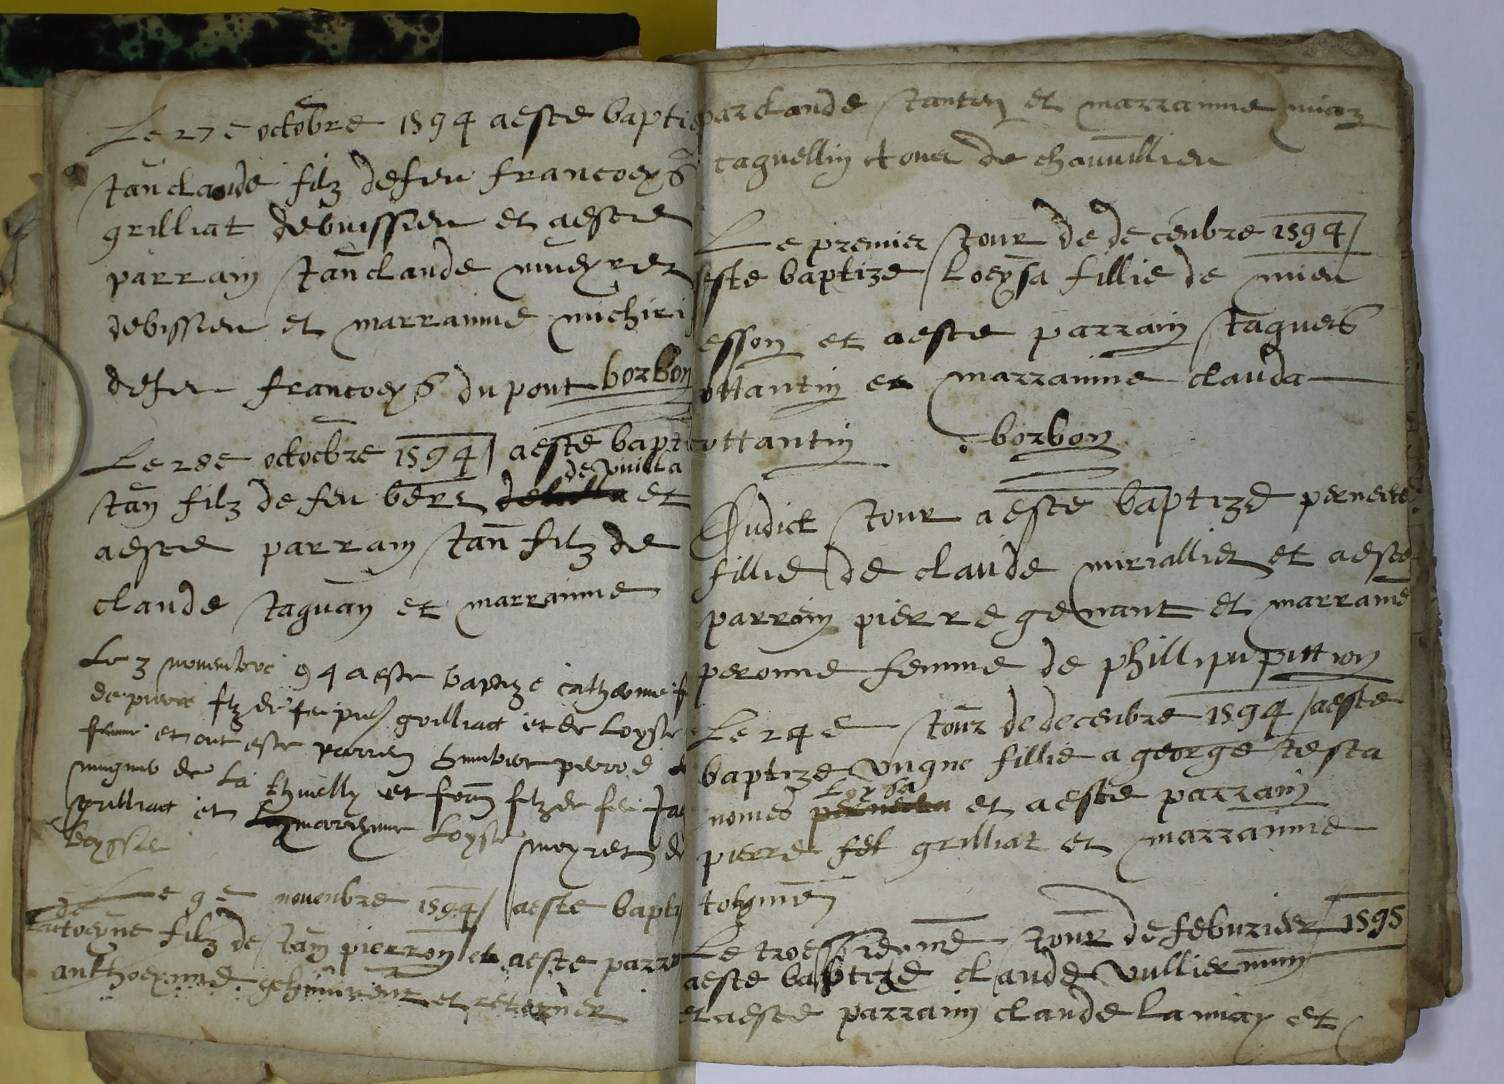 Le 27e octobre 1594 a este bapti
Jan claude filz de feu francoeys
grilliat de buissieu et a este
parrain Jan claude mueyret
de bissieu et marrainne michi
de feu francoeys du pont borbon
Le 28e octocbre 1594 a este bapt
de
Jan filz de feu et
a este parrain Jan filz de
claude Jaquan et marrainne
Le 3 novenbre 94 a este baptizé catherinne
de pierre filz de feu grilliat et de Loyse
femme et ont este parrien humbert pierre
de la et filz de feu Jac
grilliat et marrienne Loyse moyret de
beyssie
Le 9e novenbre 1594 a este bapti
filz de Jan pierron et a este parr
anthoeynne et
par claude Jantin et marrainne
de chauvillieu
Le premier Jour de decenbre 1594
este baptize Loeysa fillie de
esson et a este parrain Jaques
ottantin et marrainne clauda
ottantin borbon
Dudict Jour a este baptize pernete
fillie de claude mirallier et a este
parrein pierre genant et marrainne
peronne femme de phillipu pittion
Le 24e Jour de decenbre 1594 a este
baptize ungne fillie a george testa
Loysa
nomes et a este parrain
pierre grilliat et marrainne
Le troessiemme Jour de febvrier 1595
a este baptize claude vulliermin
et a este parrain claude Lamiax et